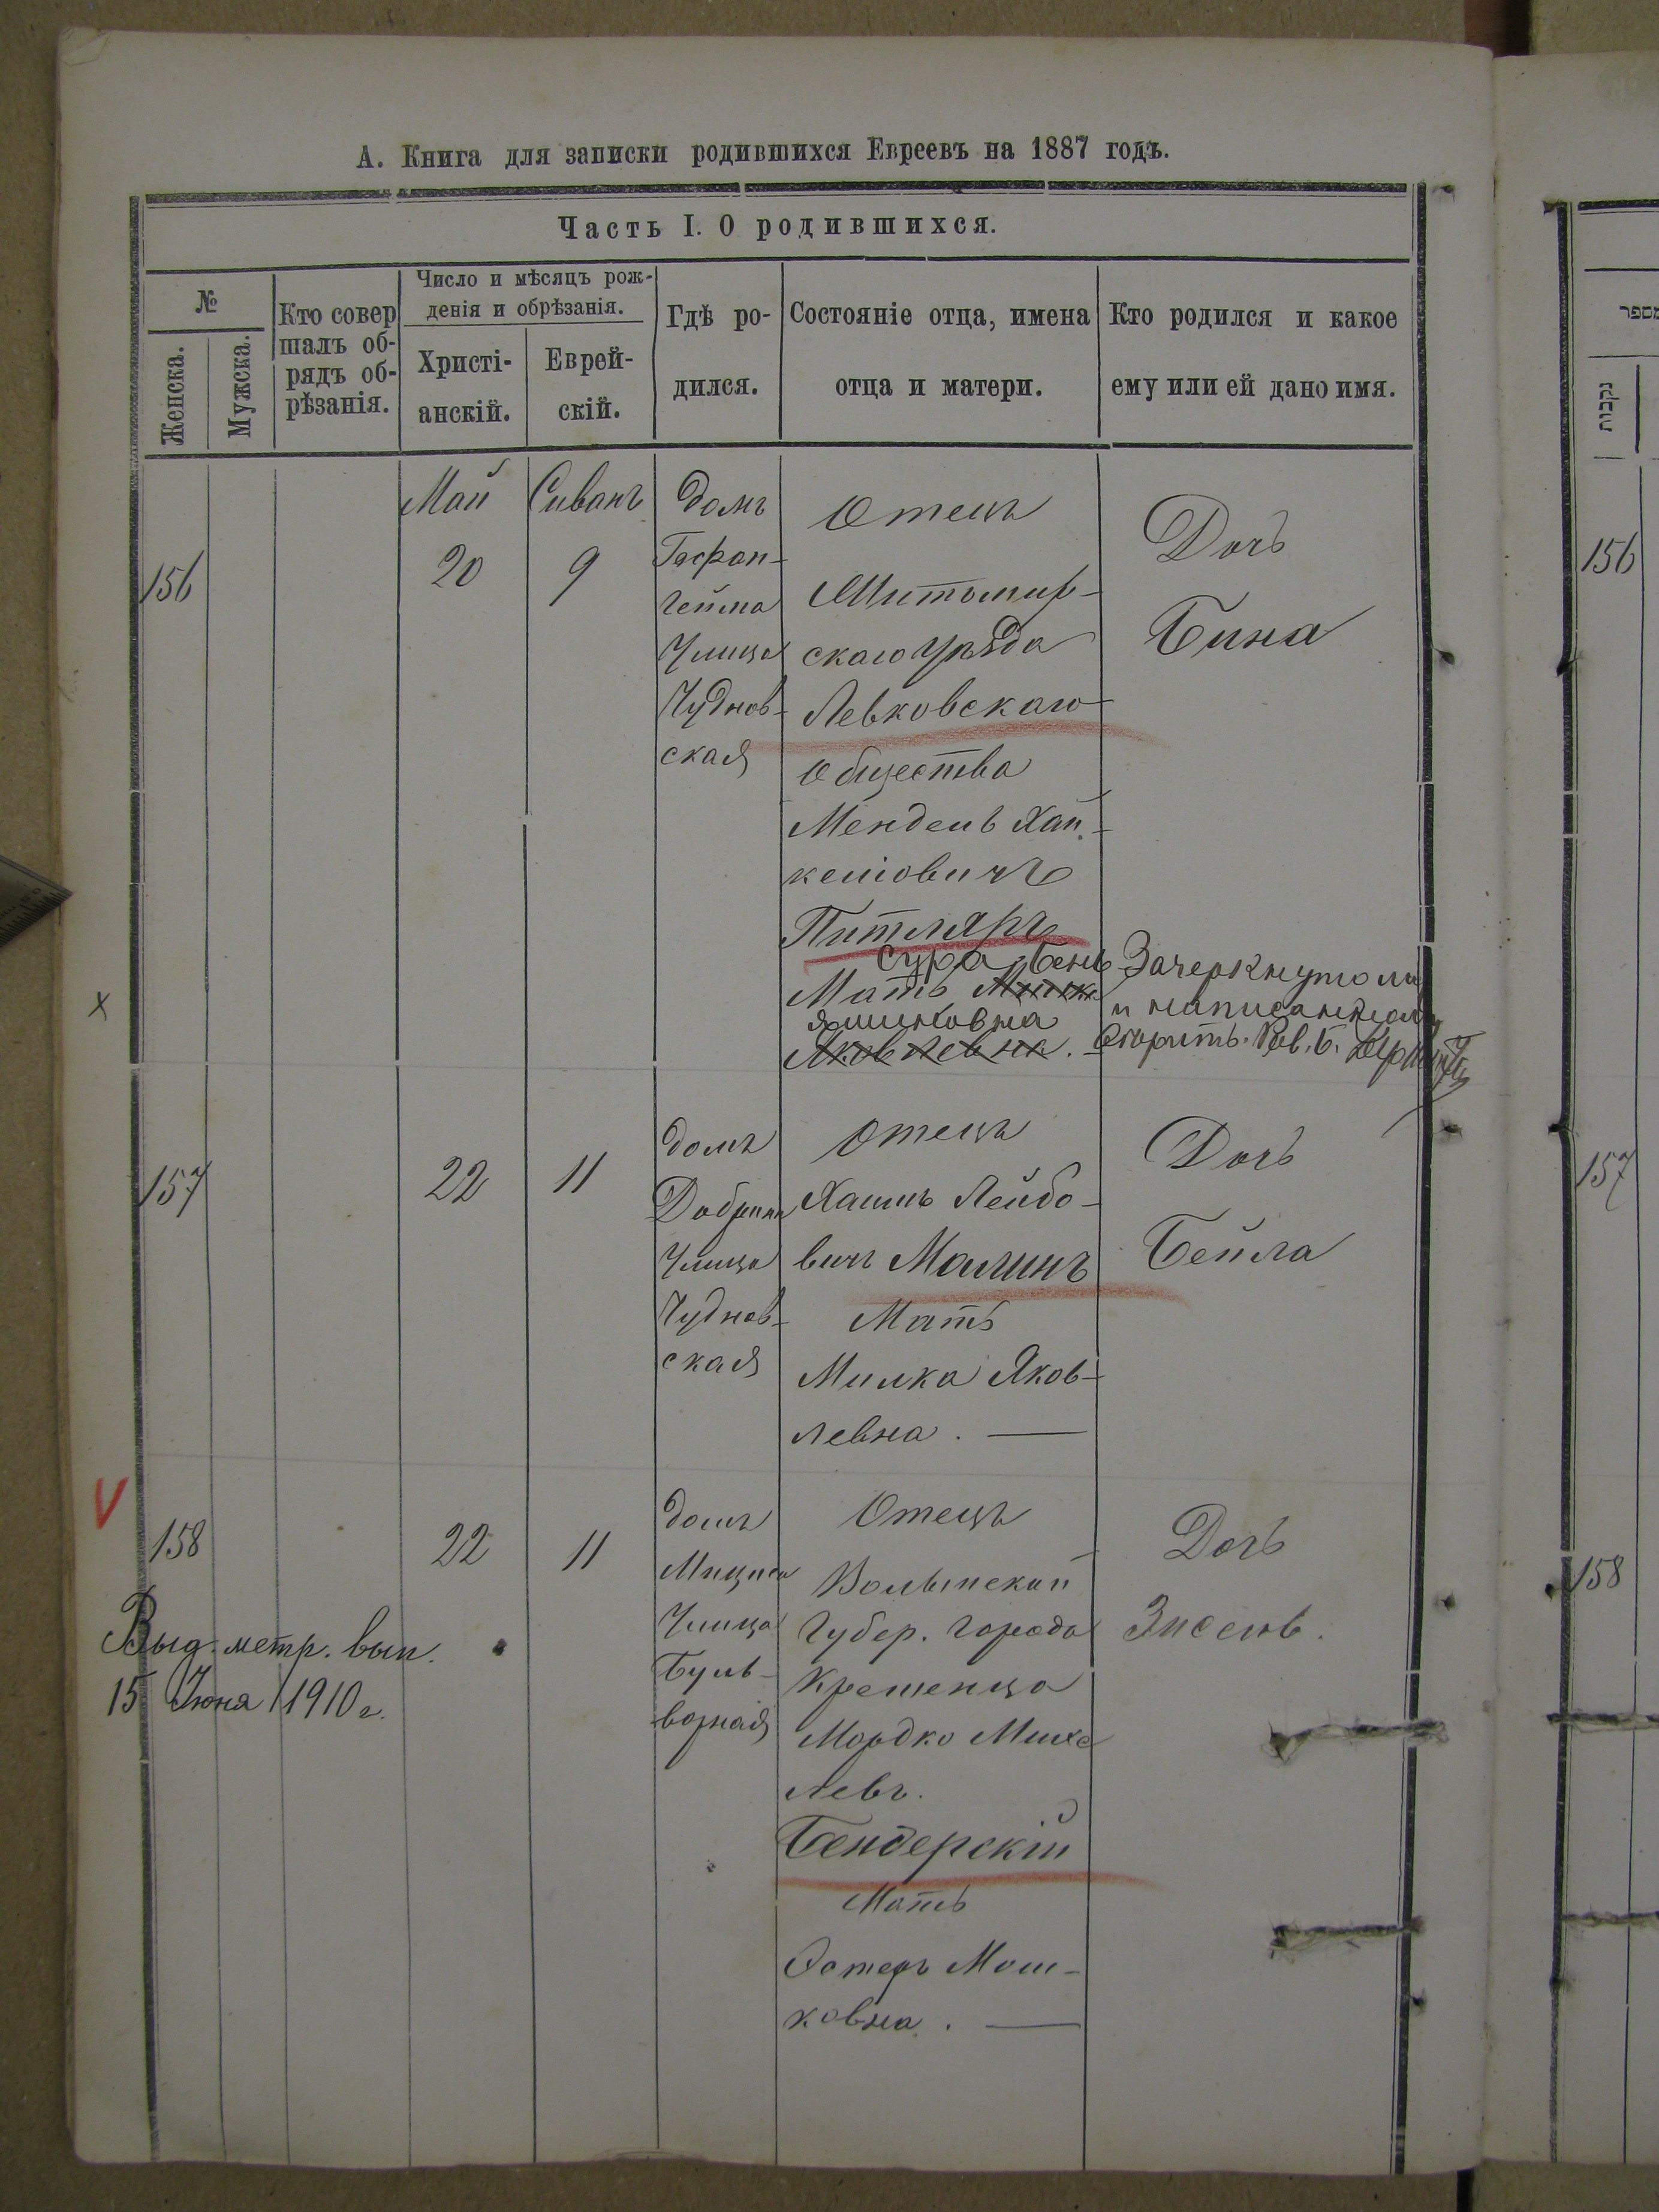 А. Книга для записки родившихся Евреевъ на 1887 годъ.
Часть I. О родившихся.
№
Женска.
Мужска.
Кто совер
шалъ об-
рядъ об-
рѣзанія.
Число и мѣсяцъ рож-
денія и обрѣзанія.
Христі-
анскій.
Еврей-
скій.
Гдѣ ро-
дился.
Состояніе отца, имена
отца и матери.
Кто родился и какое
ему или ей дано имя.
156
Май
20
Сиванъ
9
Домъ
гейма
Улица
Чуднов-
ская
Отецъ
Житомир-
скаго уѣзда
Левковскаго
общества
Мендель
Питляръ
Сура Бень
Мать
Яковлевна.
Дочь
Бина
Зачеркнуто
и
Рав. Б.
157
22
11
домъ
Улица
Чуднов-
ская
Отецъ
Хаимъ Лейбо-
вичъ Малинъ
Мать
Милка Яков-
левна.
Дочь
Бейла
158
22
11
домъ
Улица
Буль-
ворная
Отецъ
Волынской
Губер. города
Кременца
Мордко Михе
левъ.
Бендерскій
Мать
Эстеръ Мош-
ковна.
Дочь
Зисель.
Выд. метр. вып.
15 Июня 1910 г.
מספר
נקבות
156
157
158